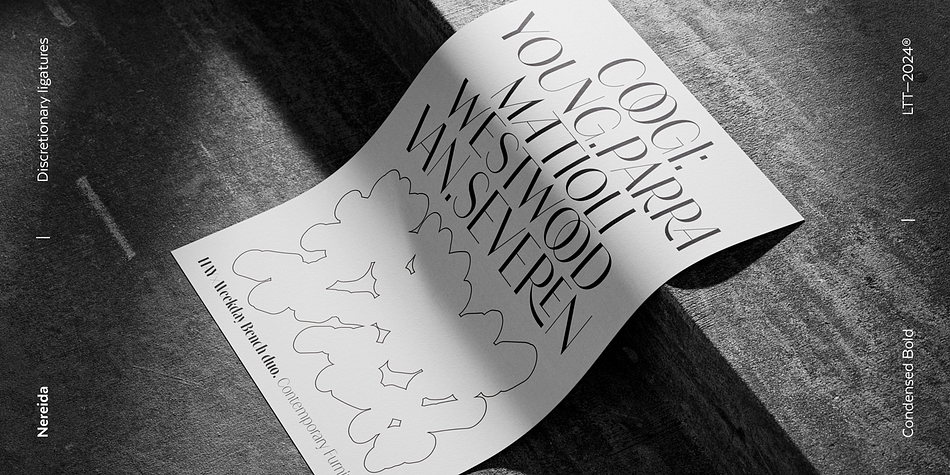 Discretionary ligatures
Nereida
COOGI:
YOUNG.PARRA
MATIOLI
WESTWOOD
VAN.SEVEREN
HAY. Weekday Bench duo. Contemporary Furni
LTT—2024®
Condensed Bold